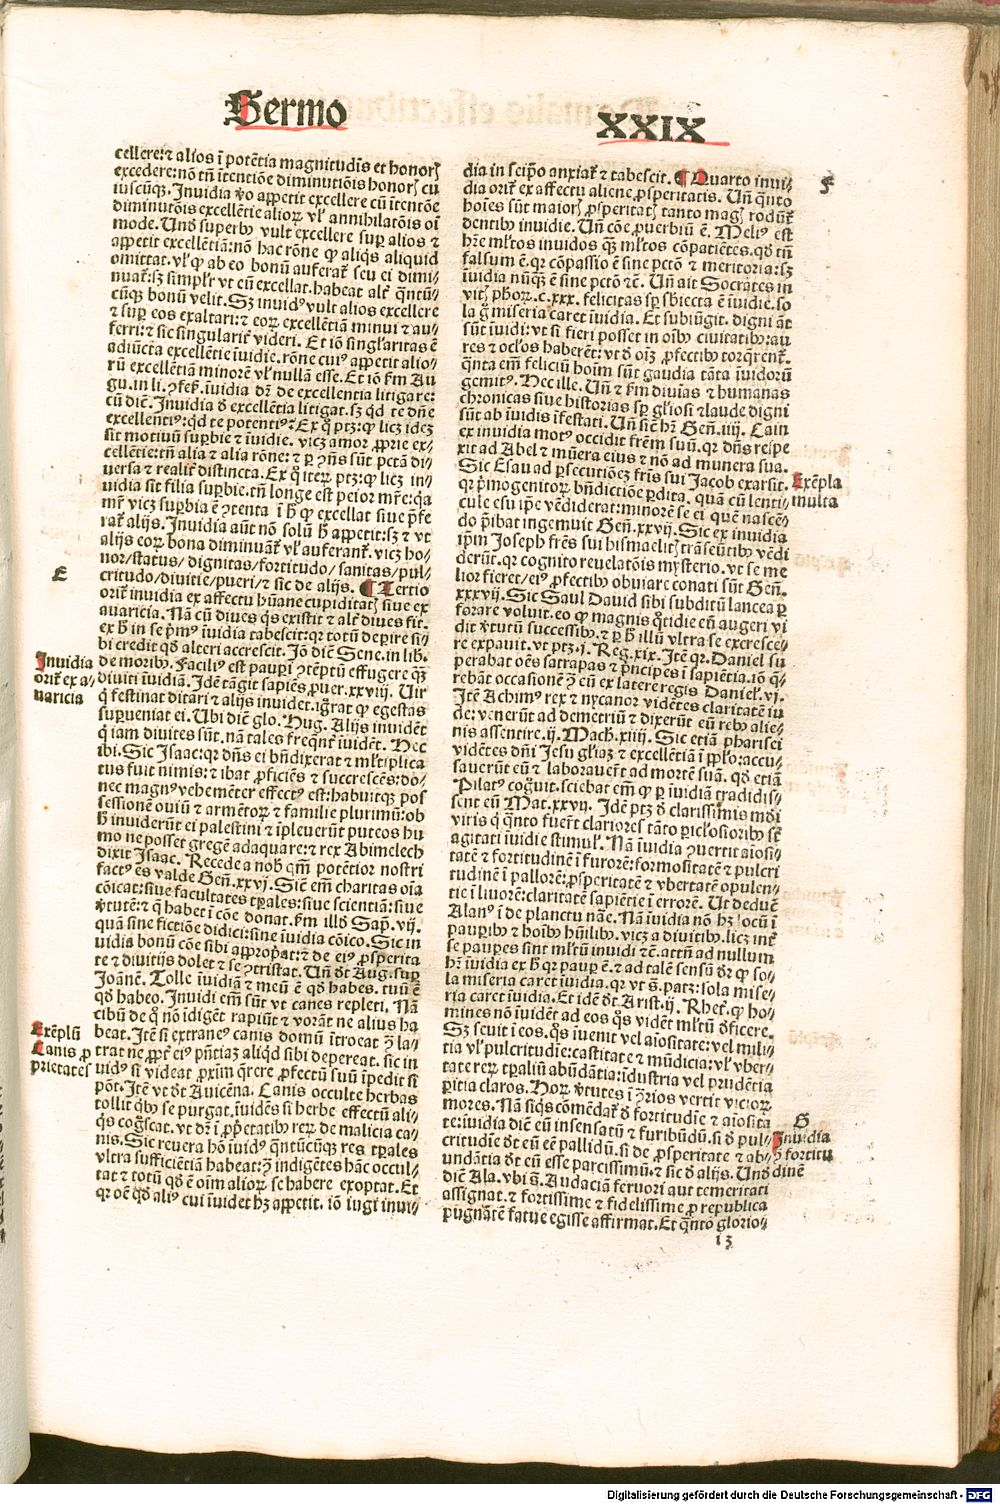 Sermo
XXIX
cellere: ⁊ alios ī potētia magnitudīs et honorꝫ
excedere: nō tñ ītentiōe diminutiōis honorꝫ cu
iuscūqꝫ. Inuidia ꝟo appetit excellere cū ītentōe
diminutōis excellētie alioꝝ vl' annihilatōis oī
mode. Unð superbꝰ vult excellere suꝑ alios ⁊
appetit excellētiā: nō hac rōne ꝙ aliqͥs aliquid
omittat. vl' ꝙ ab eo bonū auferat᷑ seu ei dimi⸗
nuat᷑: sꝫ simpl'r vt eū excellat. habeat alt᷑ qͣntū⸗
cūqꝫ bonū velit. Sꝫ inuidꝰ vult alios excellere
⁊ suꝑ eos exaltari: ⁊ eoꝝ excellētiā minui ⁊ au⸗
ferri: ⁊ sic singularit᷑ videri. Et iō singl'aritas ē
adiūcta excellētie īuidie. rōne cuiꝰ appetit alio⸗
rū excellētiā minorē vl' nullā esse. Et iō ẜm Au
gu. in li. ꝯfes. īuidia dꝛ de excellentia litigare:
cū dic̄. Inuidia ð excellētia litigat. sꝫ qͥd te dn̄e
excellentiꝰ: qͥd te potentiꝰ? Ex qͦ ptꝫ: ꝙ licꝫ idez
sit motiuū suꝑbie ⁊ īuidie. vicꝫ amor ꝓprie ex⸗
cellētie: tñ alia ⁊ alia rōne: ⁊ ꝑ ꝯn̄s sūt pctā di⸗
uersa ⁊ realit᷑ distincta. Ex qͦ iteꝝ ptꝫ: ꝙ licꝫ in⸗
uidia sit filia suꝑbie. tñ longe est peior mr̄e: qꝛ
mr̄ vicꝫ suꝑbia ē ꝯtenta ī ħ ꝙ excellat siue p̄fe
rat᷑ alijs. Inuidia aūt nō solū ħ appetit: sꝫ ⁊ vt
alijs eoꝝ bona diminuāt᷑ vl' auferant᷑. vicꝫ ho⸗
nor/ status/ dignitas/ fortitudo/ sanitas/ pul⸗
critudo/ diuitie/ pueri/ ⁊ sic de alijs. ¶ Tertio
E
orit᷑ inuidia ex affectu hūane cupiditatꝫ siue ex
auaricia. Nā cū diues qͥs existit ⁊ alt᷑ diues fit.
ex ħ in se pͥmꝰ īuidia tabescit: qꝛ totū deꝑire si⸗
bi credit qð alteri accrescit. Iō dic̄ Sene. in lib.
Inuidia
orit᷑ ex a⸗
uaricia
de moribꝰ. Faciliꝰ est pauꝑi ꝯtēptū effugere qͣꝫ
diuiti īuidiā. Idē tāgit sapiēs ꝓuer. xxviij. Uir
qͥ festinat ditari ⁊ alijs inuidet. ignorat ꝙ egestas
suꝑueniat ei. Ubi dic̄ glo. Hug. Alijs inuidēt
qͥ iam diuites sūt. nā tales freqn̄t᷑ īuidēt. Hec
ibi. Sic Isaac: qꝛ dn̄s ei bn̄dixerat ⁊ ml'tiplica
tus fuit nimis: ⁊ ibat ꝓficiēs ⁊ succrescēs: do⸗
nec magnꝰ vehemēter effectꝰ est: habuitqꝫ pos
sessionē ouiū ⁊ armētoꝝ ⁊ familie plurimū: ob
ħ inuiderūt ei palestini ⁊ īpleuerūt puteos hu
mo ne posset gregē adaquare: ⁊ rex Abimelech
dixit Isaac. Recede a nob̄ qm̄ potētior nostri
factꝰ es valde Geñ. xxvj. Sic em̄ charitas oīa
cōicat: siue facultates tꝑales: siue scientiā: siue
ꝟtutē: ⁊ qͥ habet ī cōe donat. ẜm illð Sap̄. vij.
quā sine fictiōe didici: sine īuidia cōico. Sic in
uidia bonū cōe sibi appropͥat: ⁊ de eiꝰ ꝓsperita
te ⁊ diuitijs dolet ⁊ se ꝯtristat. Uñ ð⁊ Aug. suꝑ
Joānē. Tolle īuidiā ⁊ meū ē qð habes. tuū ē
qð habeo. Inuidi em̄ sūt vt canes repleti. Nā
cibū de qͦ nō īdigēt rapiūt ⁊ vorāt ne alius ha
Exēplū
Canis ꝓ
prietates
beat. Itē si extraneꝰ canis domū ītroeat ꝯ la⸗
trat ne ꝓpt᷑ eiꝰ pn̄tiaꝫ aliqͥd sibi depereat. sic in
uidꝰ si videat proxim q̄rere ꝓfectū suū īpedit si
pōt. Itē vt ð⁊ Auicēna. Canis occulte herbas
tollit qͥbꝰ se purgat. īuidēs si herbe effectū ali⸗
qͥs cogͦscat. vt dꝛ ī ꝓpͥetatibꝰ reꝝ de malicia ca⸗
nis. Sic reuera hō īuidꝰ qͣntūcūqꝫ res tꝑales
vltra sufficiētiā habeat: ꝯ indigētes hāc occul⸗
tat ⁊ totū qð ē oīm alioꝝ se habere exoptat. Et
qꝛ oē qð aliꝰ cui īuidet hꝫ appetit. iō iugi inui⸗
dia in seip̄o anxiat᷑ ⁊ tabescit. ¶ Quarto inui⸗
F
dia orit᷑ ex affectu aliene ꝓsperitatis. Uñ qͣnto
hoīes sūt maiorꝫ ꝓsperitatꝫ tanto magꝫ rodūt᷑
dentibꝰ inuidie. Uñ cōe ꝓuerbiū ē. Meliꝰ est
hr̄e ml'tos inuidos qͣꝫ ml'tos cōpatiētes. qð tñ
falsum ē. qꝛ cōpassio ē sine pctō ⁊ meritoria: sꝫ
īuidia nūqꝫ ē sine pctō ⁊c̄. Uñ ait Socrates in
vitꝫ ph'oꝝ. c. xxx. felicitas sꝑ sbiecta ē īuidie. so
la g̊ miseria caret īuidia. Et subiūgit. digni āt
sūt īuidi: vt si fieri posset in oībꝰ ciuitatibꝰ: au
res ⁊ ocl'os haberēt: vt ð oīꝫ ꝓfectibꝰ torqrent᷑.
qͣnta em̄ feliciū hoīm sūt gaudia tāta īuidorū
gemitꝰ. Hec ille. Uñ ⁊ ẜm diuias ⁊ humanas
chronicas siue historias sꝑ gl'iosi ⁊ laude digni
sūt ab īuidis īfestati. Uñ sic hꝛ Geñ. iiij. Cain
ex inuidia motꝰ occidit frēm suū. qꝛ dn̄s respe
xit ad Abel ⁊ mūera eius ⁊ nō ad munera sua.
Exēpla
multa
Sic Esau ad ꝑsecutiōeꝫ fris sui Jacob exarsit.
qꝛ pͥmogenitoꝝ bn̄dictiōe ꝑdita. quā cū lenti⸗
cule esu ip̄e vēdiderat: minorē se ei quē nascē⸗
do p̄ibat ingemuit Geñ. xxvij. Sic ex inuidia
ip̄m Joseph frēs sui hismaelitꝫ trāseūtibꝰ vēdi
derūt. qꝛ cognito reuelatōis mysterio. vt se me
lior fieret/ eiꝰ ꝓfectibꝰ obuiare conati sūt Geñ.
xxxvij. Sic Saul Dauid sibi subditū lancea ꝑ
forare voluit. eo ꝙ magis qͦtidie eū augeri vi
dit ꝟtutū successibꝰ. ⁊ ꝑ ħ illū vltra se excresce⸗
re expauit. vt ptꝫ. j. Reg. xix. Itē qꝛ Daniel su
perabat oēs satrapas ⁊ pͥncipes ī sapiētia. iō q̄⸗
rebāt occasionē ꝯ eū ex latere regis Daniel. vj.
Itē Achimꝰ rex ⁊ nycanor vidētes claritatē iu
de: venerūt ad demetriū ⁊ dixerūt eū rebꝰ alie⸗
nis assentire. ij. Mach. xiiij. Sic etiā pharisei
vidētes dn̄i Jesu gl'iaꝫ ⁊ excellētiā ī ppl'o: accu⸗
sauerūt eū ⁊ laborauerūt ad mortē suā. qð etiā
Pilatꝰ cogͦuit. sciebat em̄ ꝙ ꝑ īuidiā tradidis⸗
sent eū Mat. xxvij. Idē ptꝫ ð clarissimis mūdi
viris qͥ qͣnto fuerūt clariores tāto ꝑicl'osioribꝰ sūt
agitati īuidie stimul'. Nā īuidia ꝯuertit aīosi⸗
tatē ⁊ fortitudinē ī furorē: formositatē ⁊ pulcri
tudinē ī pallorē: ꝓsperitatē ⁊ vbertatē opulen⸗
tie ī liuorē: claritatē sapiētie ī errorē. Ut deducit
Alanꝰ ī de planctu nāe. Nā īuidia nō hꝫ locū ī
pauꝑibꝰ ⁊ hoībꝰ hūilibꝰ. vicꝫ a diuitibꝰ. licꝫ int᷑
se pauꝑes sint ml'tū inuidi ⁊c̄. attñ ad nullum
hꝛ īuidia ex ħ qꝛ pauꝑ ē. ⁊ ad talē sensū ðꝛ ꝙ so⸗
la miseria caret īuidia. qꝛ vt s̄. patꝫ: sola mise⸗
ria caret īuidia. Et idē ð⁊ Arist. ij. Rhet. ꝙ ho⸗
mines nō īuidēt ad eos qͦs vidēt ml'tū dſicere.
Sꝫ seuit ī eos. qͦs īuenit vel aīositate: vel mili⸗
tia vl' pulcritudīe: castitate ⁊ mūdicia: vl' vber⸗
tate reꝝ tꝑaliū abūdātia: īdustria vel prudētia
ꝑitia claros. Hoꝝ ꝟtutes ī ꝯrios vertit vicioꝝ
G
mores. Nā siqͥs cōmēdat᷑ ð fortitudīe ⁊ aīosita
te: īuidia dic̄ eū insensatū ⁊ furibūdū. si ð pul⸗
Inuidia
ꝯ fortitu
dinē
critudīe ð⁊ eū eē pallidū. si de ꝓsperitate ⁊ ab⸗
undātia ð⁊ eū esse parcissimū. ⁊ sic ð alijs. Unð
dic̄ Ala. vbi s̄. Audaciā feruori aut temeritati
assignat. ⁊ fortissime ⁊ fidelissime ꝓ republica
pugnātē fatue egisse affirmat. Et qͣnto glorio⸗
l 3
Digitalisierung gefördert durch die Deutsche Forschungsgemeinschaft - DFG